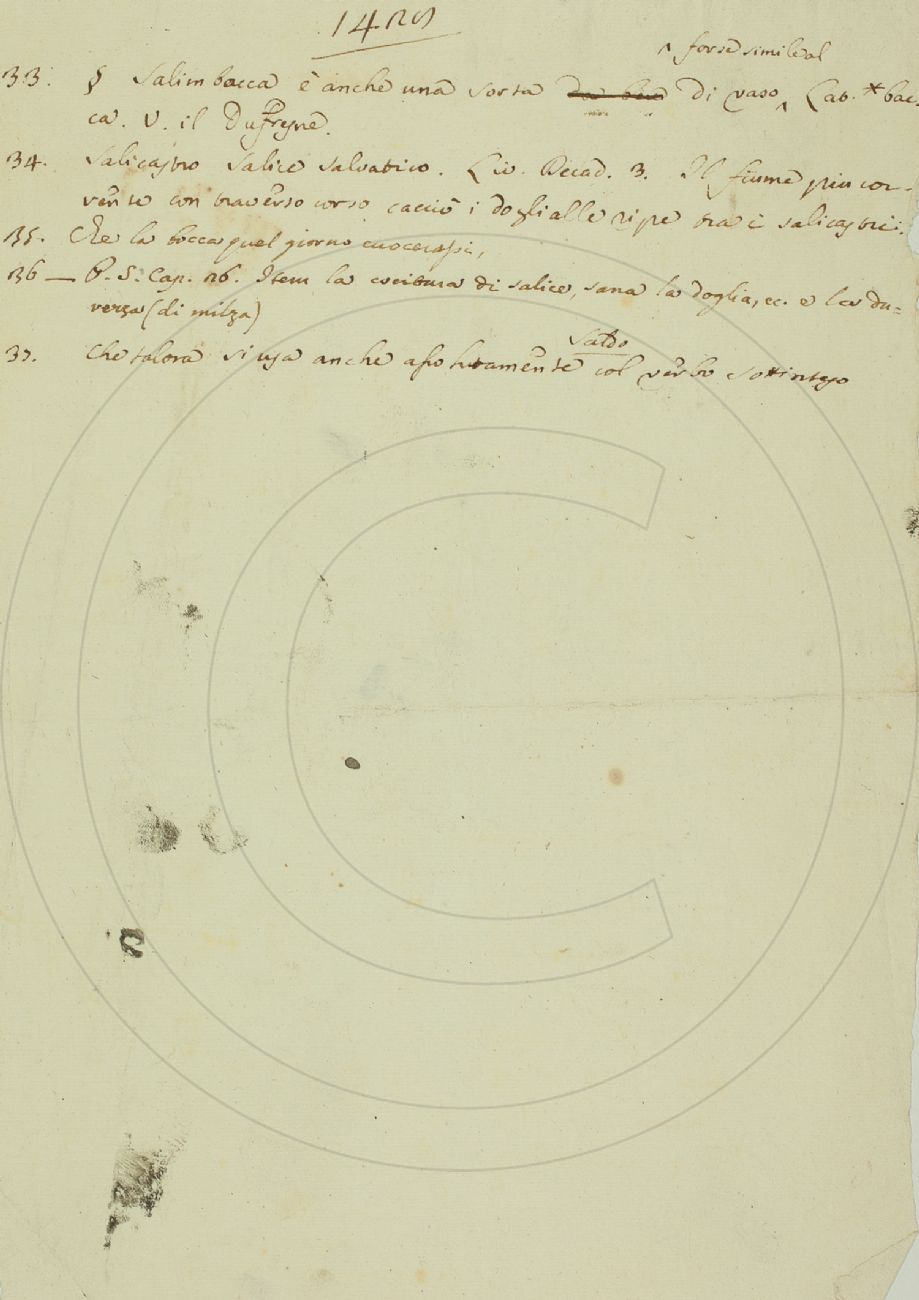 1429
^ forse simile al
33. § Salimbacca è anche una sorta di vaso ^ Lat. * bac-
ca. V. il Dufresne.
34. Salicastro Salice salvatico. Liv. Decad. 3. Il fiume piu cor-
rente con traverso corso cacciò i dogli alle ripe tra i salicastri.
35. Che la bocca quel giorno cuocerassi,
36 — P. S. Cap. 26. Item la cocitura di salice, sana la doglia, ec. e la du=
rezza (di milza)
Saldo
37. Che talora si usa anche assolutamente col verbo sottinteso